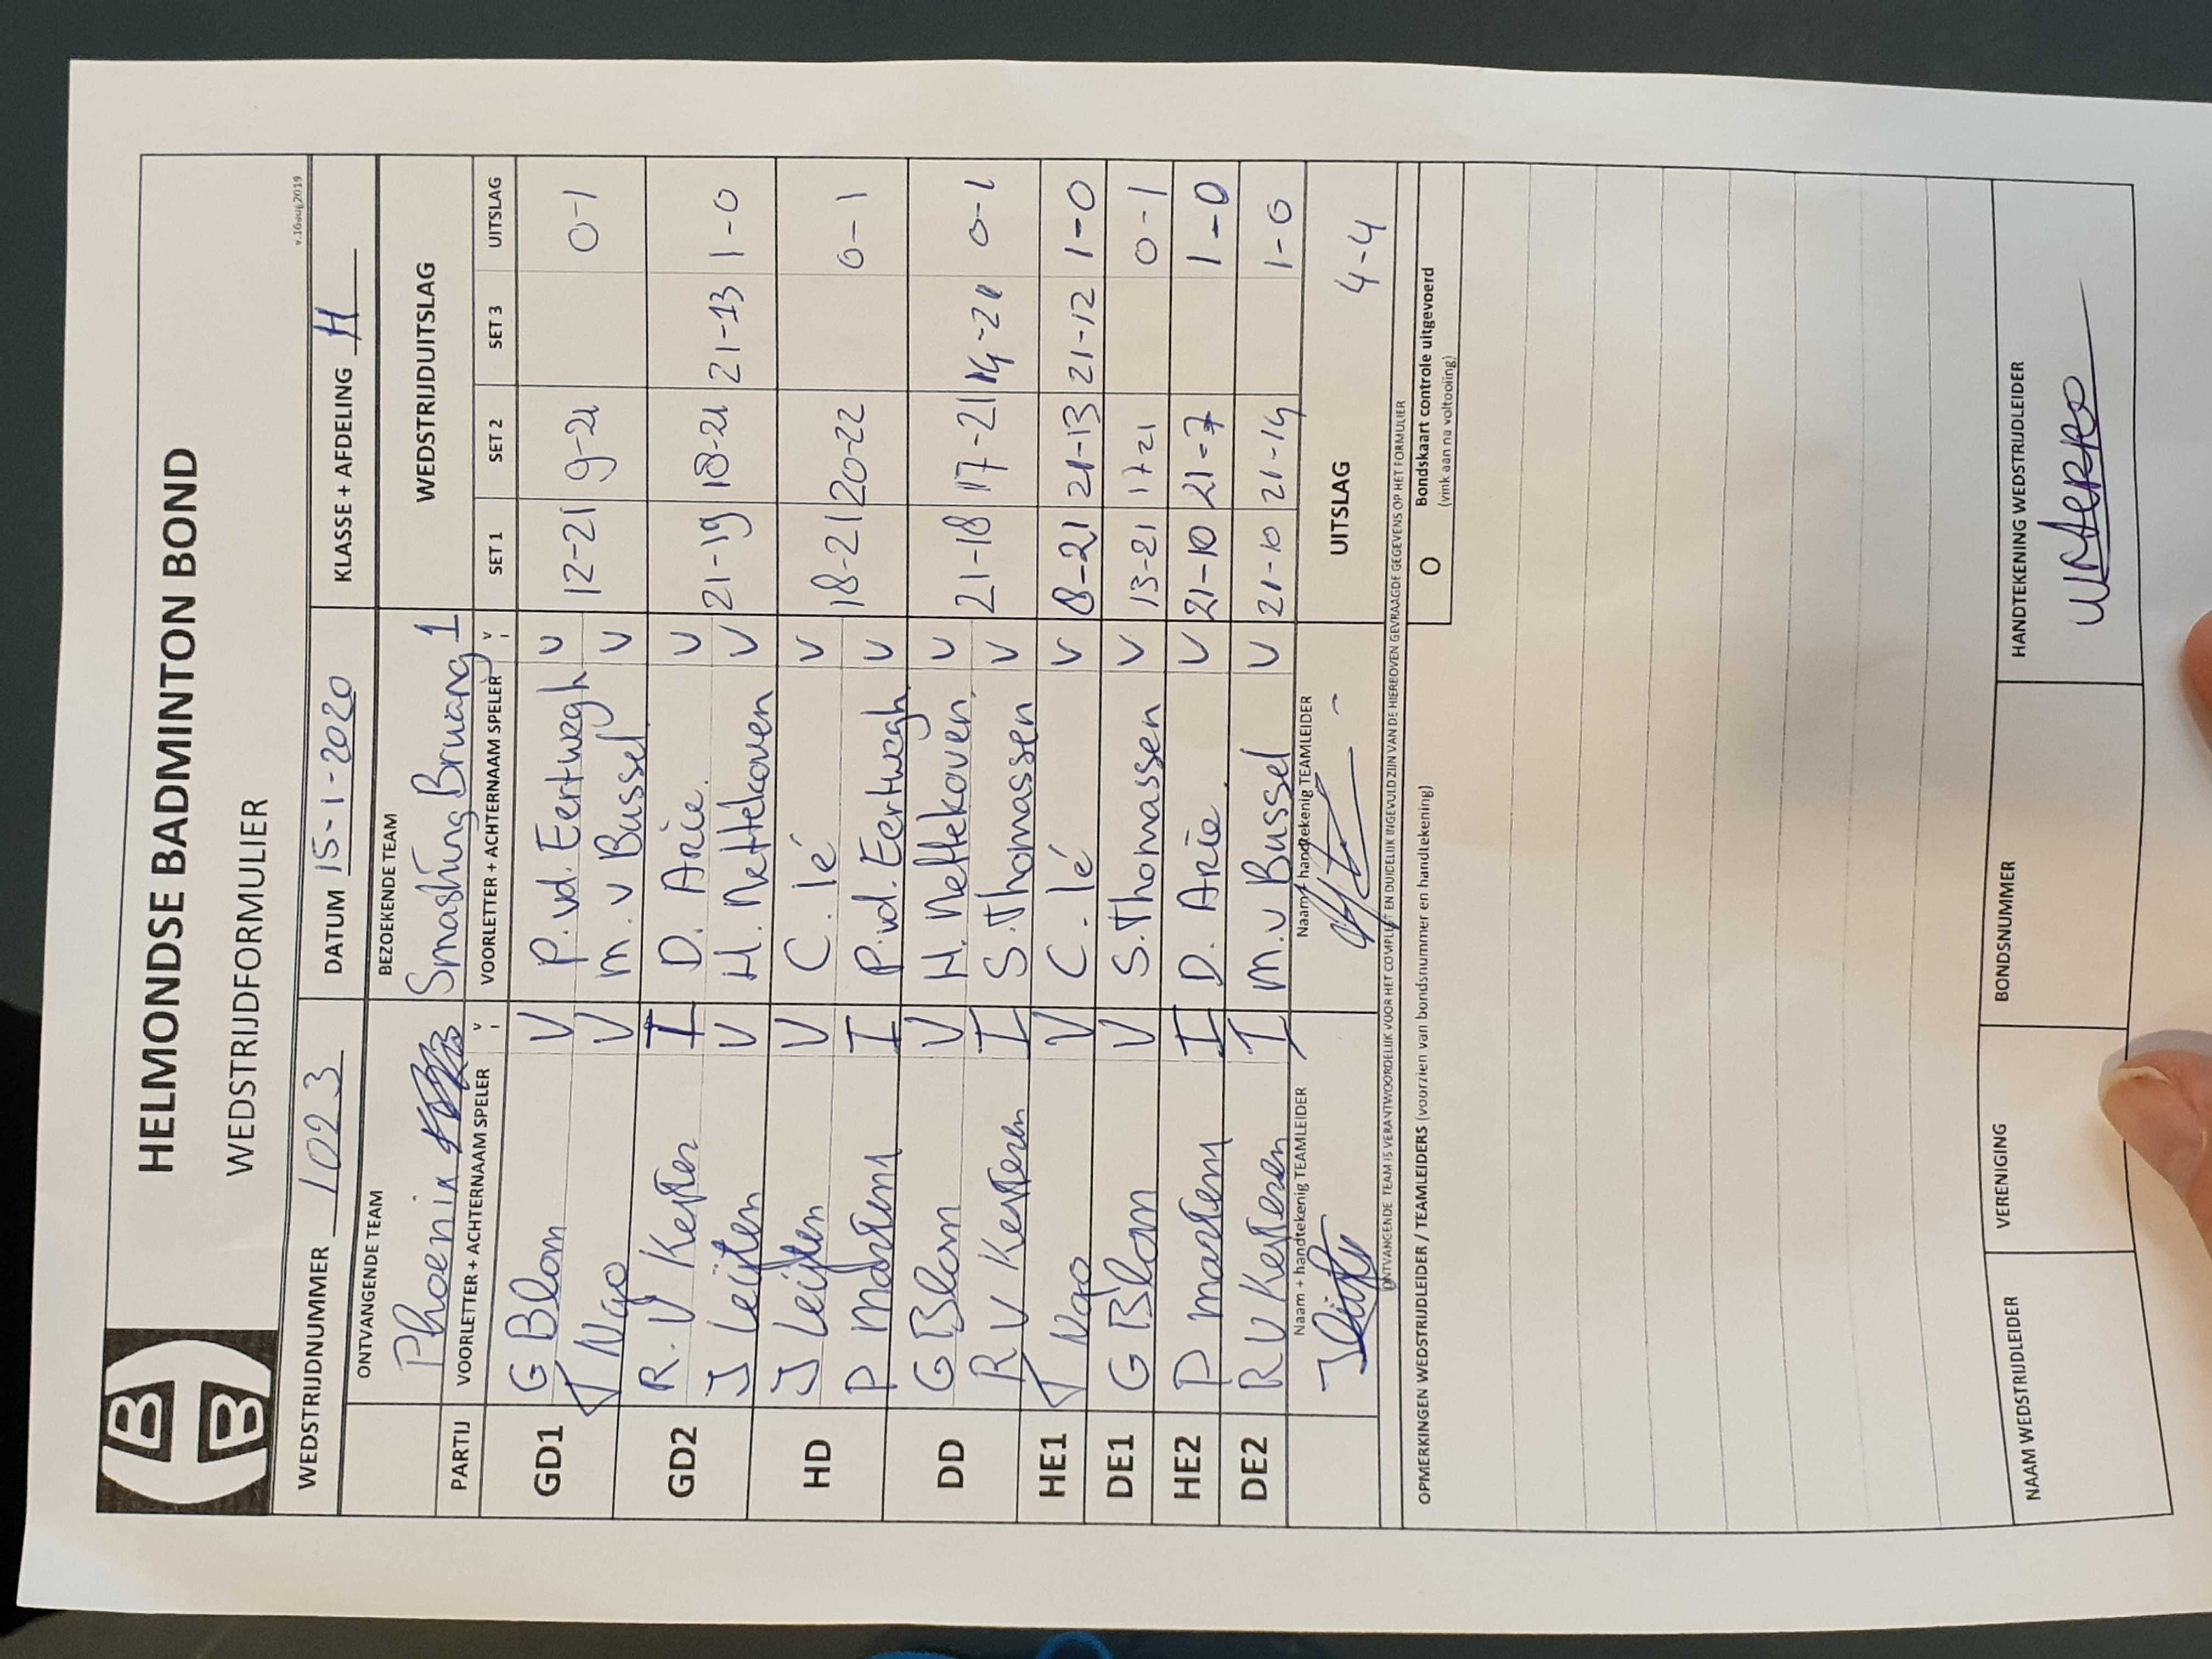 HELMONDSE BADMINTON BOND
WEDSTRIJDFORMULIER
v.16aug2019
WEDSTRIJDNUMMER 1023 DATUM 15-1-2020 KLASSE + AFDELING H
ONTVANGENDE TEAM BEZOEKENDE TEAM WEDSTRIJDUITSLAG
Phoenix Smashing Bruang 1
PARTIJ VOORLETTER + ACHTERNAAM SPELER V I VOORLETTER + ACHTERNAAM SPELER V I SET 1 SET 2 SET 3 UITSLAG
GD1 G Blom V P. vd. Eertwegh V
T Ngo V M. v Bussel V 12-21 9-21 0-1
GD2 R. V Kester I D. Arie. V
J Leijten V H. Nettekoven V 21-19 18-21 21-13 1-0
HD J Leijten V C. lé V
P Martens I P. vd. Eertwegh V 18-21 20-22 0-1
DD G Blom V H. Nettekoven V
R V Kesteren I S. Thomassen V 21-18 17-21 14-21 0-1
HE1 T Ngo V C. lé V 8-21 21-13 21-12 1-0
DE1 G Blom V S. Thomassen V 13-21 17-21 0-1
HE2 P Martens I D. Arie V 21-10 21-7 1-0
DE2 R V Kesteren I M. v Bussel V 21-10 21-14 1-0
Naam + handtekenig TEAMLEIDER Naam + handtekenig TEAMLEIDER UITSLAG 4-4
ONTVANGENDE TEAM IS VERANTWOORDELIJK VOOR HET COMPLEET EN DUIDELIJK INGEVULD ZIJN VAN DE HIERBOVEN GEVRAAGDE GEGEVENS OP HET FORMULIER
OPMERKINGEN WEDSTRIJDLEIDER / TEAMLEIDERS (voorzien van bondsnummer en handtekening) O Bondskaart controle uitgevoerd
(vink aan na voltooiing)
NAAM WEDSTRIJDLEIDER VERENIGING BONDSNUMMER HANDTEKENING WEDSTRIJDLEIDER